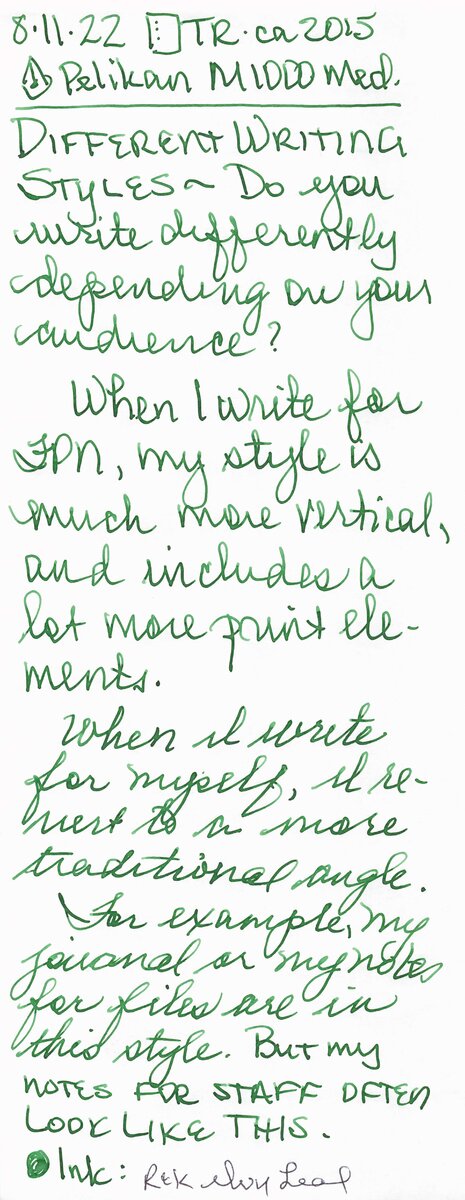 8.11.22 TR.ca 2015
Pelikan M1000 Med.
DIFFERENT WRITING
STYLES ~ Do you
write differently
depending on your
audience?
When I write for
FPN, my style is
much more vertical,
and includes a
lot more print ele-
ments.
When I write
for myself, I re-
vert to a more
traditional angle.
For example, my
journal or my notes
for files are in
this style. But my
NOTES FOR STAFF OFTEN
LOOK LIKE THIS.
Ink: R&K